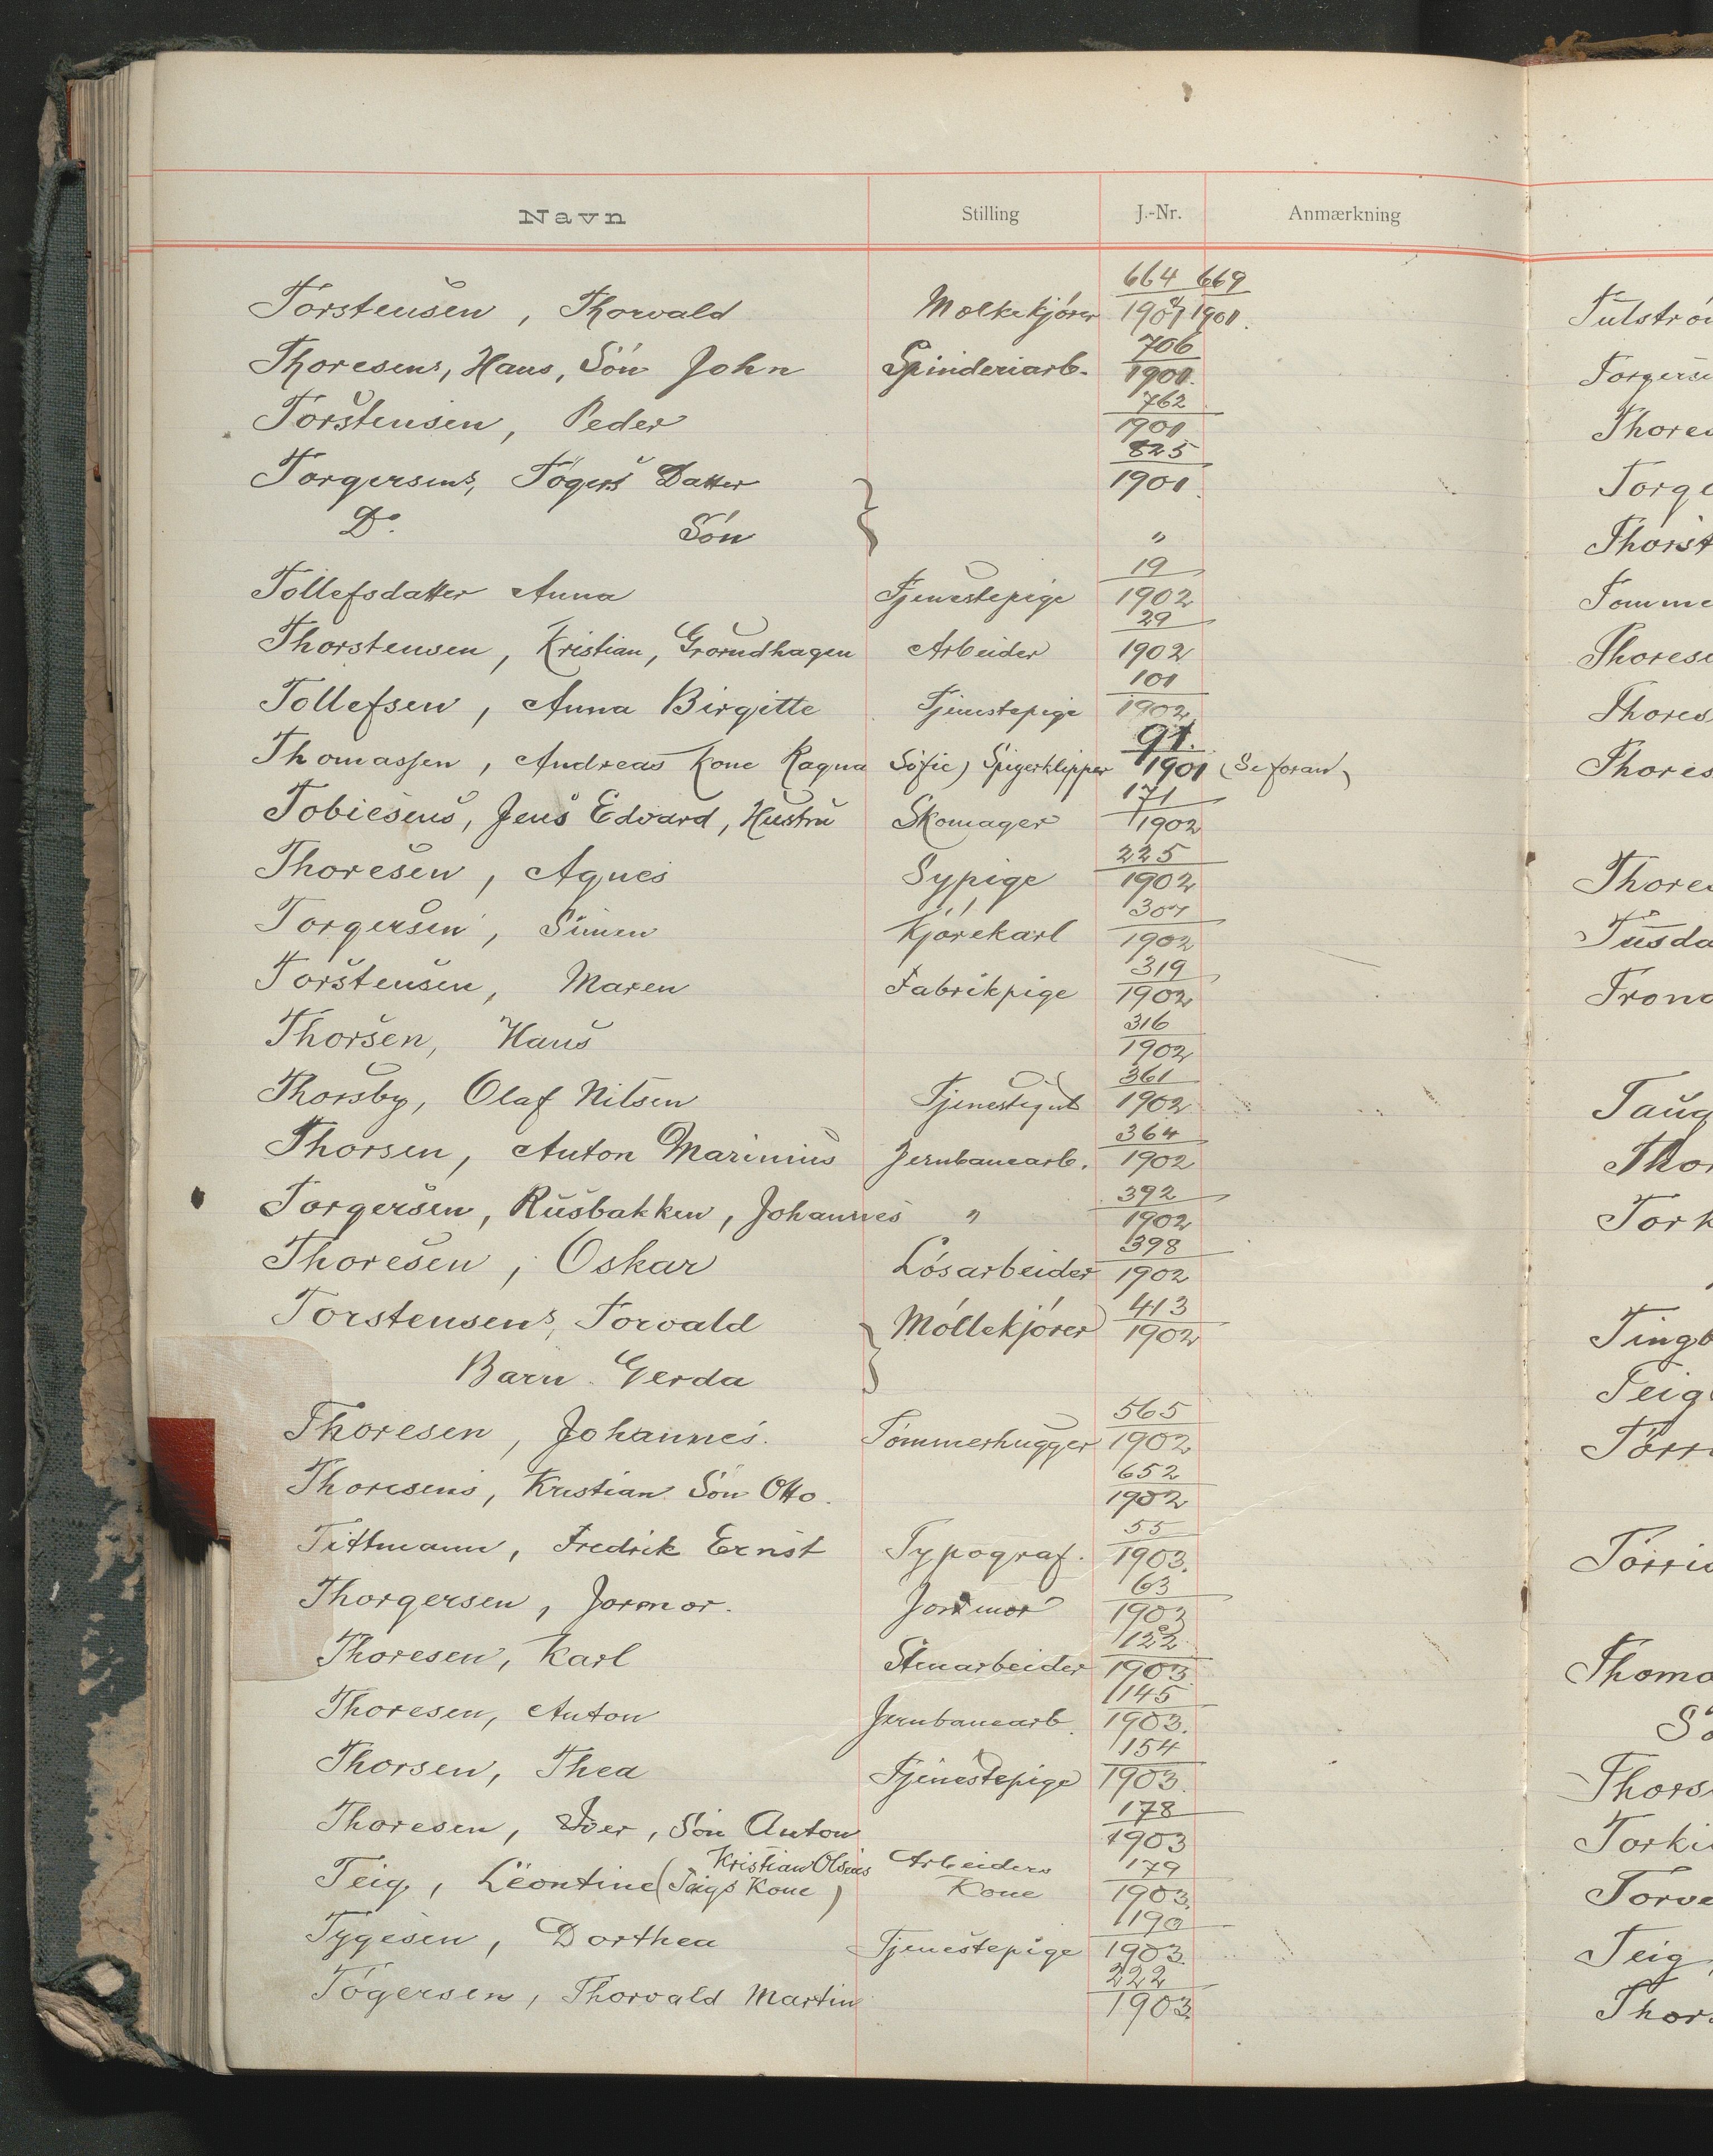 Navn Stilling J.-Nr. Anmærkning
Torstensen, Thorvald Mølkekjører 664/1901 669/1901.
Thoresens, Hans, Søn John Spinderiarb. 706/1901.
Torstensen, Peder 762/1901
Torgersens, Tøgers Datter 825/1901.
Do. Søn "
Tollefsdatter Anna Tjenestepige 19/1902
Thorstensen, Kristian, Grorudhagen Arbeider 29/1902
Tollefsen, Anna Birgitte Tjenestepige 101/1902
Thomassen, Andreas Kone Ragna Sofie) Spigerklipper 91./1901 (Se foran)
Tobiesens, Jens Edvard, Hustru Skomager 171/1902
Thoresen, Agnes Sypige 225/1902
Torgersen, Simen Kjørekarl 307/1902
Torstensen, Maren Fabrikpige 319/1902
Thorsen, Hans 316/1902
Thorsby, Olaf Nilsen Tjenestegut 361/1902
Thorsen, Anton Marinius Jernbanearb. 364/1902
Torgersen, Rusbakken, Johannes " 392/1902
Thoresen, Oskar Løsarbeider 398/1902
Torstensens, Torvald Møllekjører 413/1902
Barn Gerda
Thoresen, Johannes. Tømmerhugger 565/1902
Thoresens, Kristian Søn Otto. 652/1902
Tittmann, Fredrik Ernst Typograf. 55/1903.
Thorgersen, Jormor. Jordmor 63/1903
Thoresen, Karl Stenarbeider 122/1903
Thoresen, Anton Jernbanearb. 145/1903.
Thorsen, Thea Tjenestepige 154/1903.
Thoresen, Iver, Søn Anton 178/1903
Teig, Leontine (Kristian Olsens Teigs Kone) Arbeiders Kone 179/1903.
Tygesen, Dorthea Tjenestepige 190/1903
Tøgersen, Thorvald Martin 222/1903.
Thores
Torge
Thorst
Tomme
Thorese
Thores
Thores
Thore
Tusda
Trond
Taug
Thor
Tork
Tingb
Teig
Tørr
Torris
Thoma
Sø
Thors
Torki
Torve
Teig
Thor